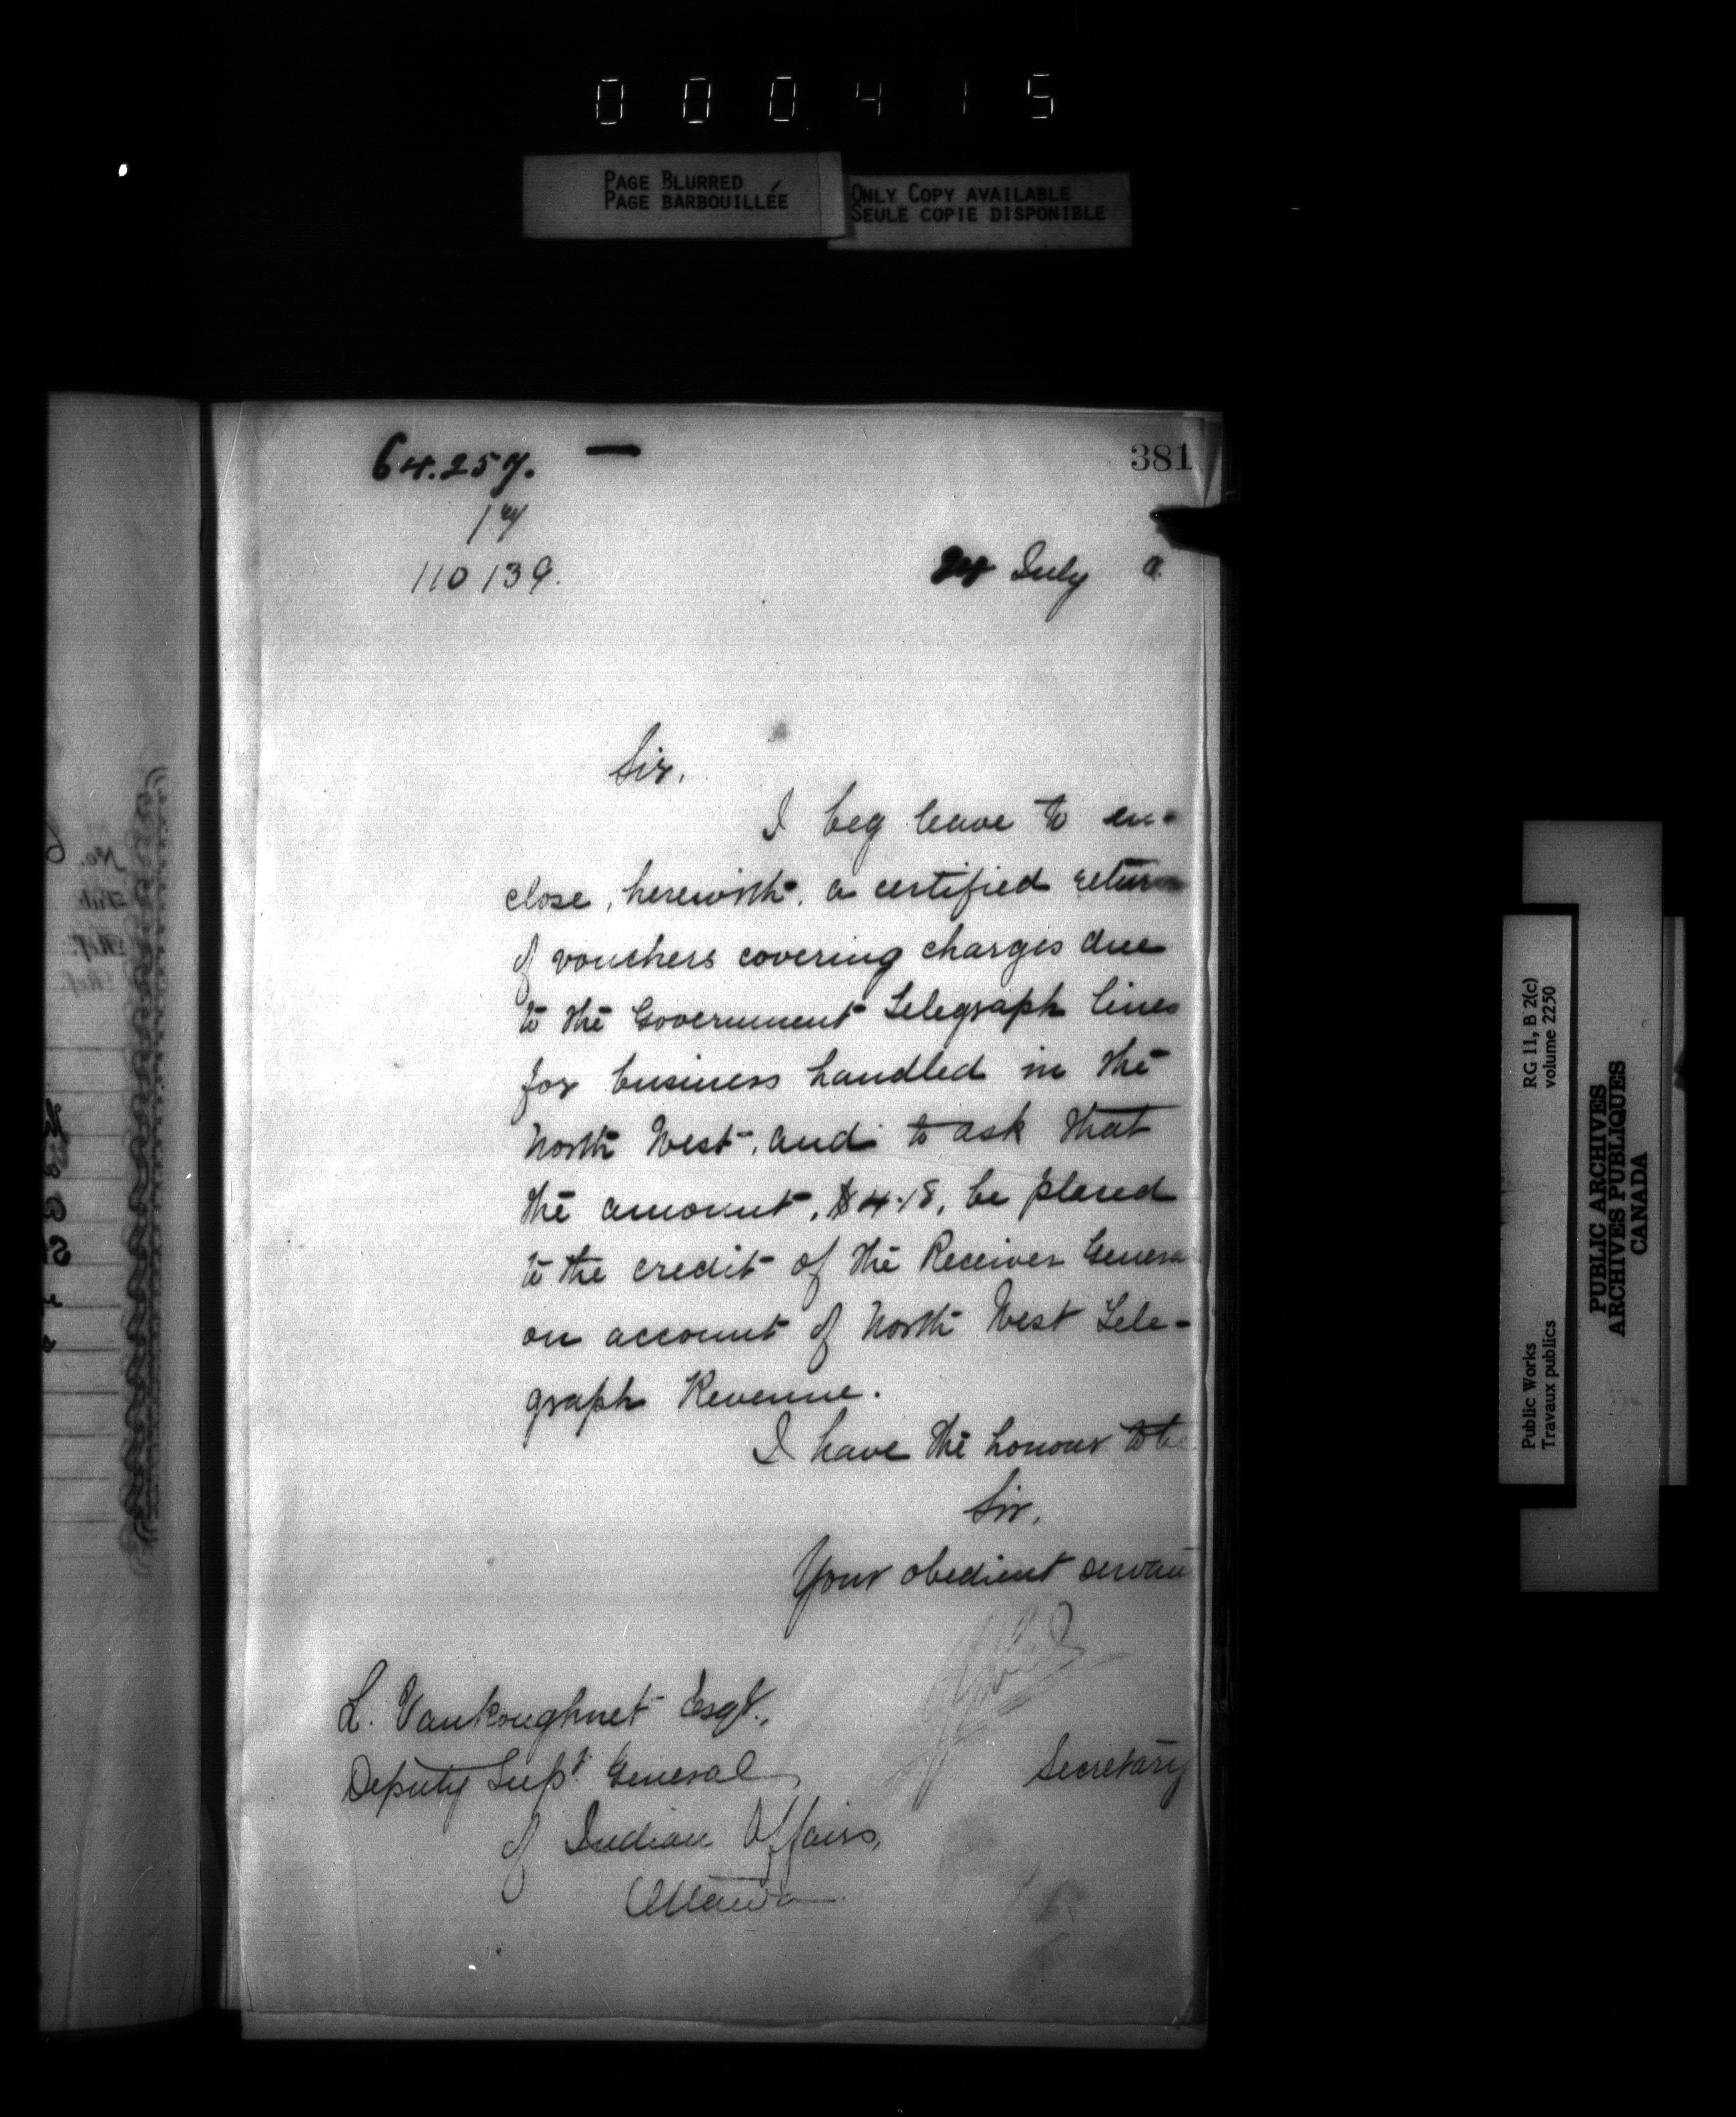 000415
PAGE BLURRED
PAGE BARBOUILLÉE
ONLY COPY AVAILABLE
SEULE COPIE DISPONIBLE
64.257.
381
110139.
July
Sir,
I beg leave to en-
close, herewith, a certified return
of vouchers covering charges due
to the Government Telegraph lines
for business handled in the
North West, and to ask that
the amount, $4.18, be placed
to the credit of the Receiver Genera
on account of North West Tele-
graph Revenue.
I have the honour to be
Sir,
Your obedient servan
L. Vankoughnet Esqr.,
Deputy Supt. General
Secretary
of Indian Affairs,
Ottawa
Public Works
Travaux publics
RG 11, B 2(c)
volume 2250
PUBLIC ARCHIVES
ARCHIVES PUBLIQUES
CANADA